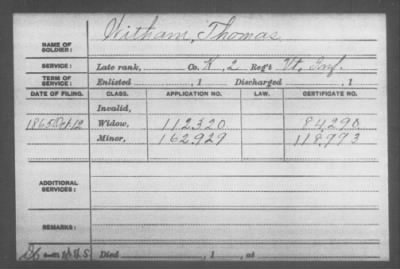 NAME OF SOLDIER: Witham, Thomas
SERVICE: Late rank, Co. K, 2 Reg't Vt. Inf.
TERM OF SERVICE: Enlisted , 1 Discharged , 1
DATE OF FILING. CLASS. APPLICATION NO. LAW. CERTIFICATE NO.
Invalid,
1865 Oct 12 Widow, 112320 84,290
Minor, 162,929 118,993
ADDITIONAL SERVICES:
REMARKS:
Died , 1 , at